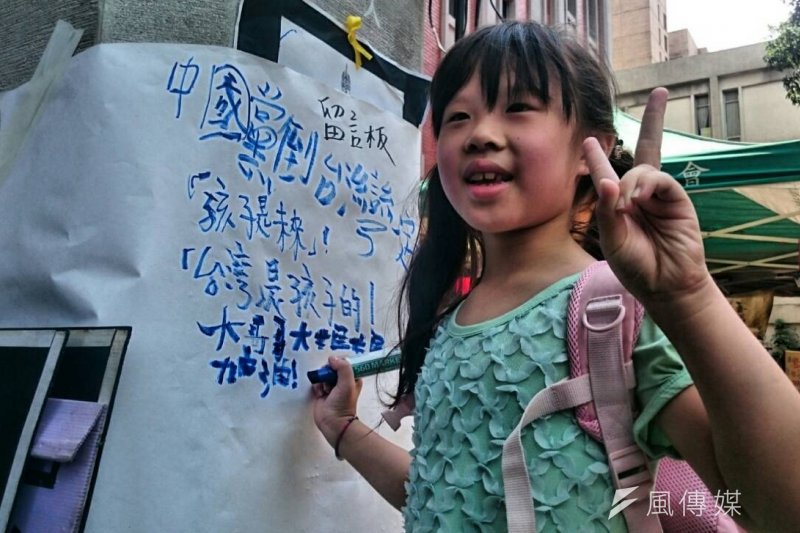 留言板
中國黨倒台灣
「孩子是未來」!
「台灣是孩子的!
大哥哥大姐姐
加油!
560 MARKER
會
風傳媒